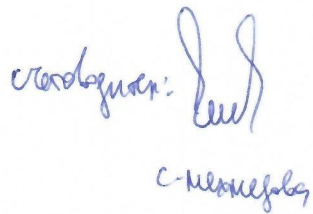 счетоводител:
с-мехмедова